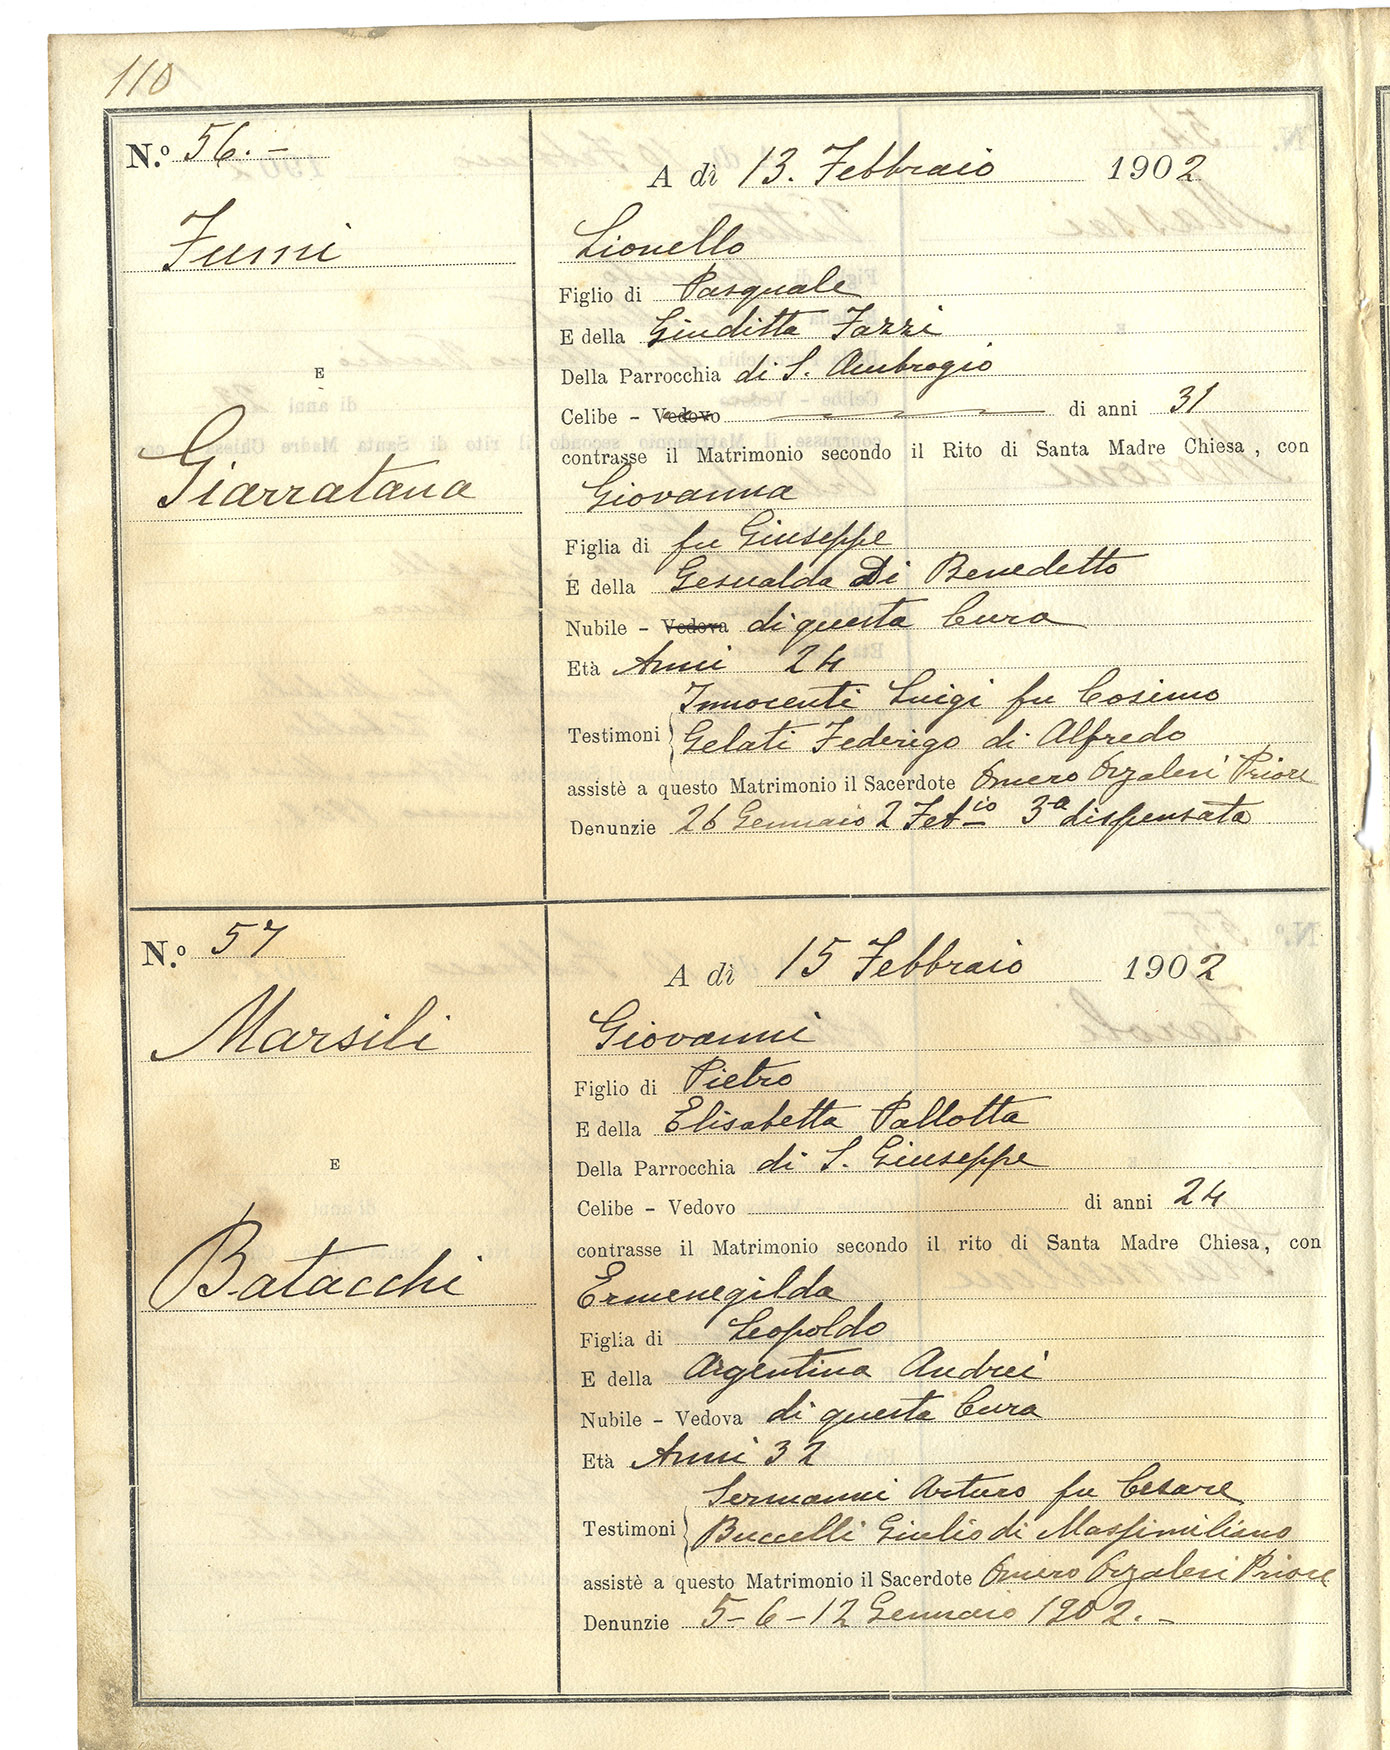 110
N.º 56. -
A dì 13. Febbraio 1902
Fumi
Lionello
Figlio di Pasquale
E della Giuditta Fazzi
Della Parrocchia di S. Ambrogio
E
Celibe - Vedovo di anni 31
contrasse il Matrimonio secondo il Rito di Santa Madre Chiesa, con
Giarratana
Giovanna
Figlia di fu Giuseppe
E della Gesualda Di Benedetto
Nubile - Vedova di questa Cura
Età Anni 24
Innocenti Luigi fu Cosimo
Testimoni Gelati Federigo di Alfredo
assistè a questo Matrimonio il Sacerdote Omero Orzalesi Priore
Denunzie 26 Gennaio 2 Febio 3a dispensata
N.º 57
A dì 15 Febbraio 1902
Marsili
Giovanni
Figlio di Pietro
E della Elisabetta Pallotta
Della Parrocchia di S. Giuseppe
E
Celibe - Vedovo di anni 24
contrasse il Matrimonio secondo il rito di Santa Madre Chiesa, con
Batacchi
Ermenegilda
Figlia di Leopoldo
E della Argentina Andrei
Nubile - Vedova di questa Cura
Età Anni 32
Sermanni Arturo fu Cesare
Testimoni Buccelli Giulio di Massimiliano
assistè a questo Matrimonio il Sacerdote Omero Orzalesi Priore
Denunzie 5 - 6 - 12 Gennaio 1902. -